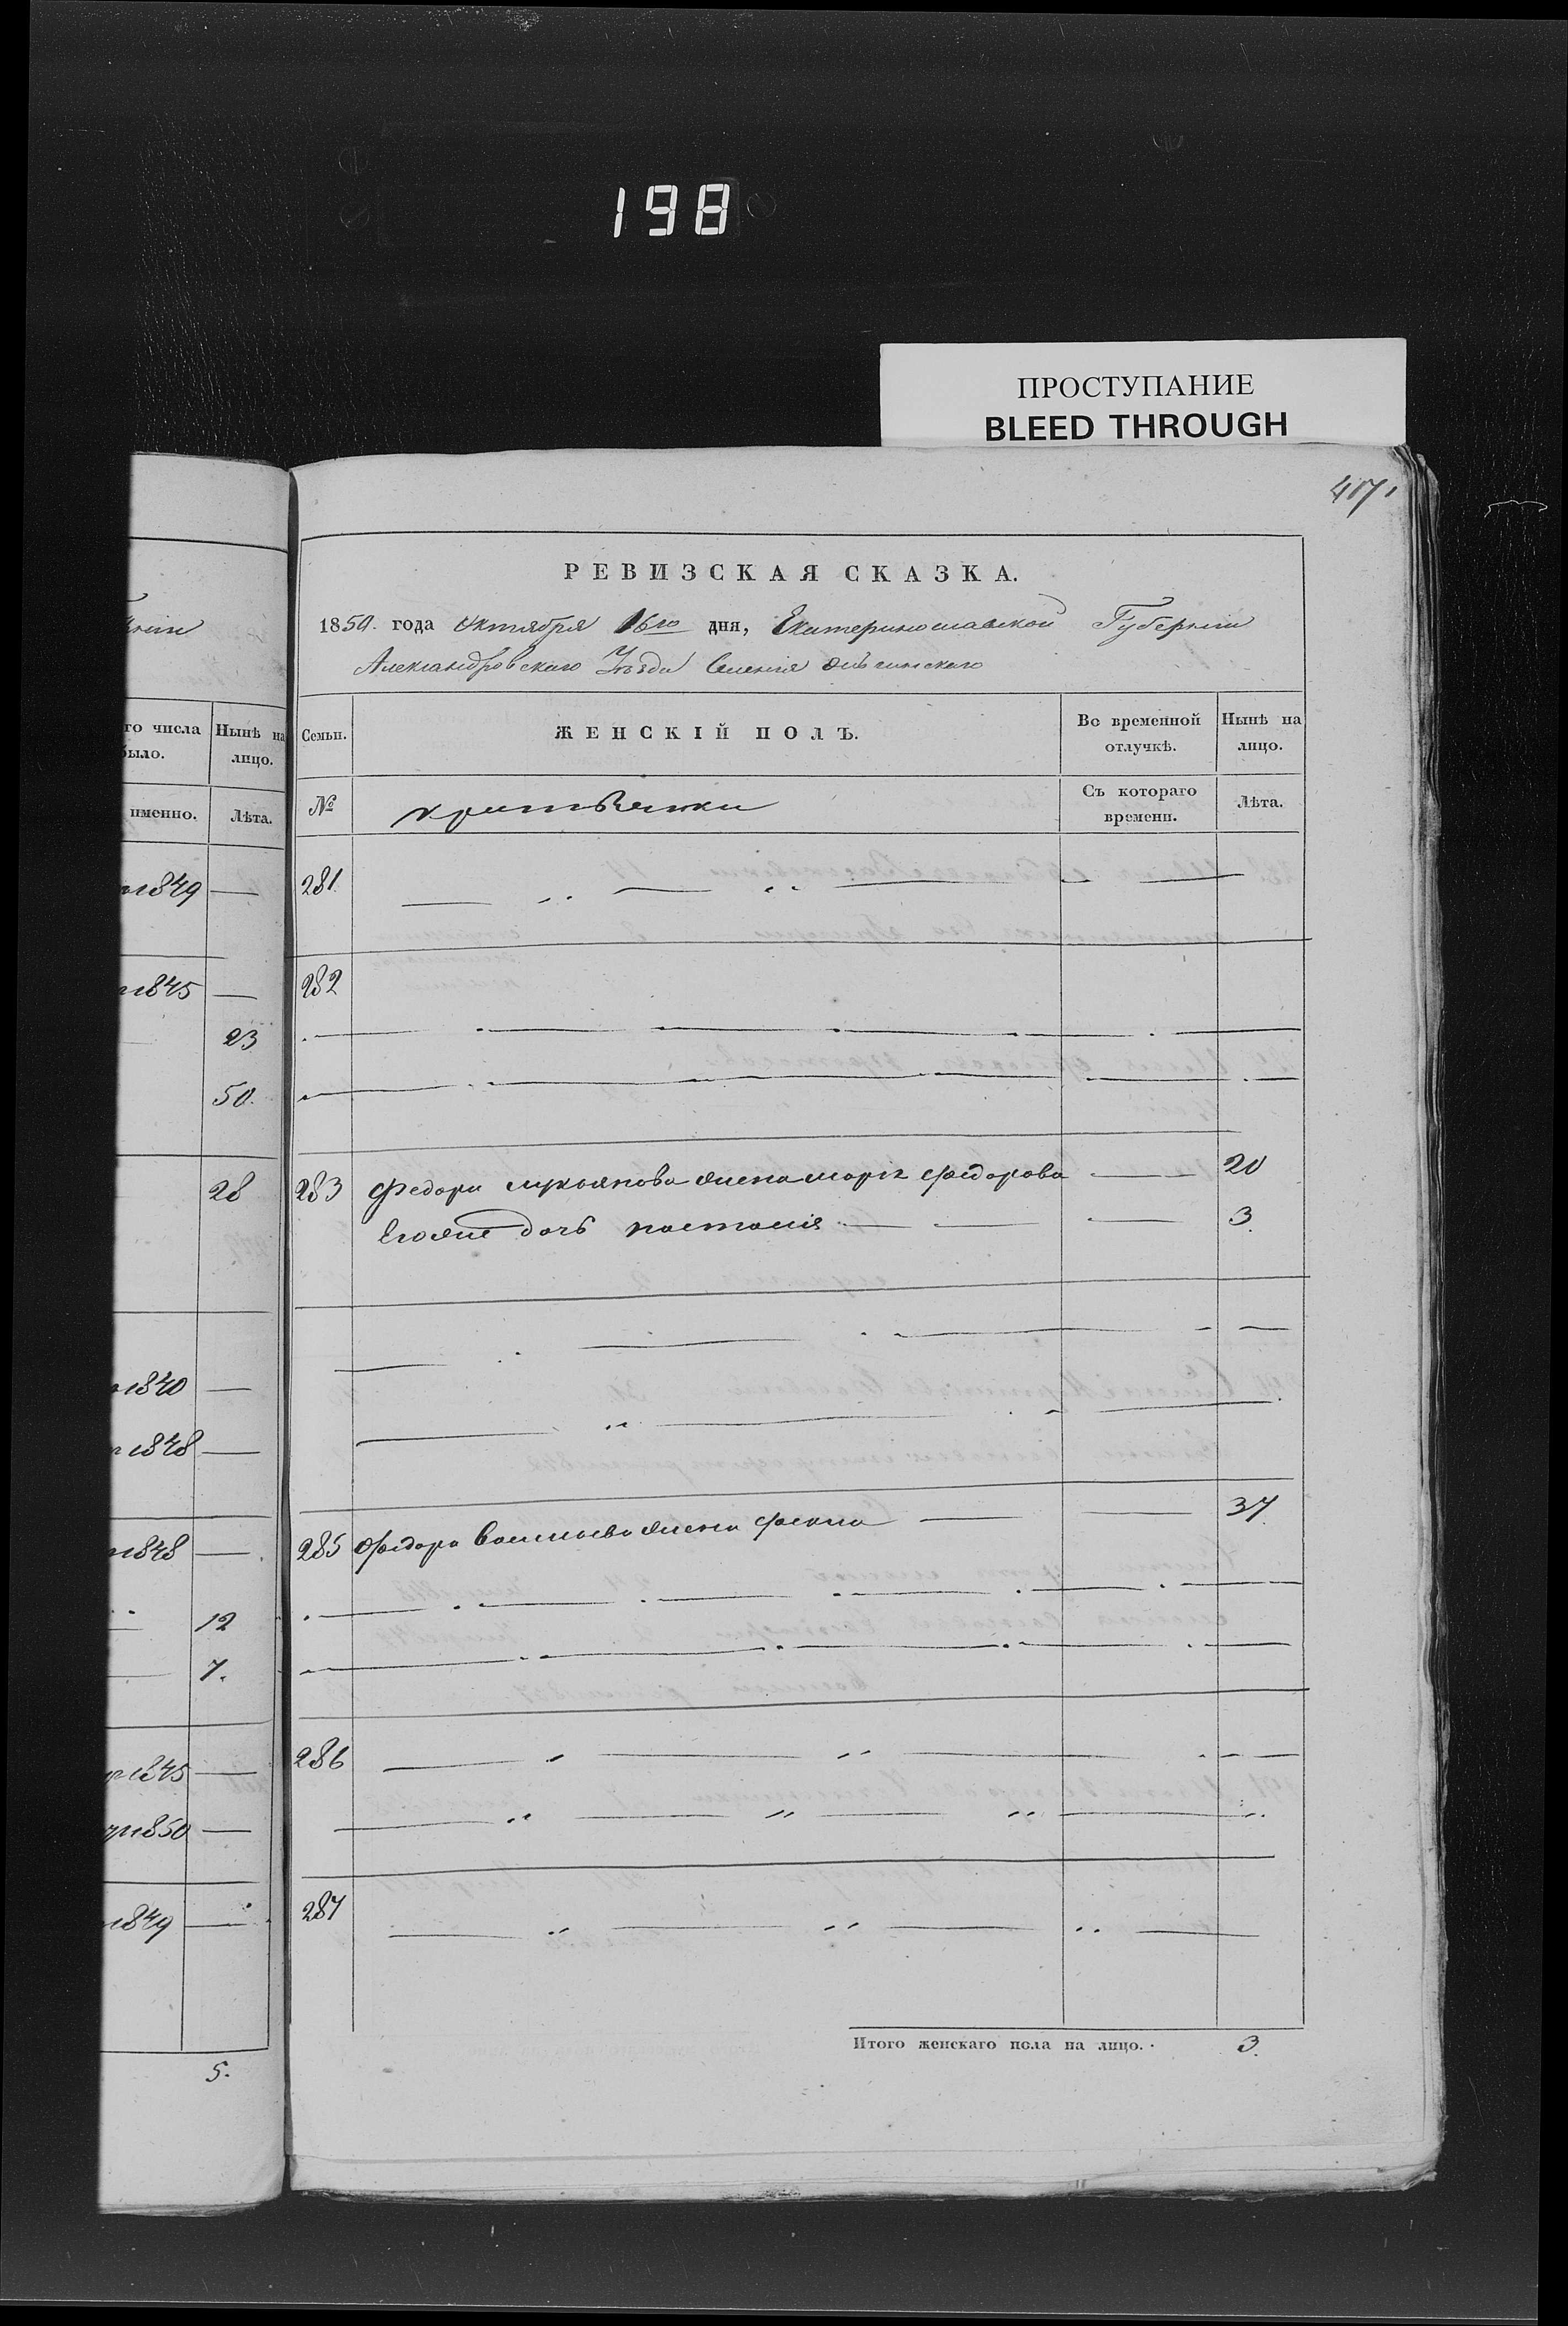 198
ПРОСТУПАНИЕ
BLEED THROUGH
417
РЕВИЗСКАЯ СКАЗКА.
1850. года Октября 16го дня, Екатеринославской Губернии
Александровского Уѣзда Селения
го числа было. Нынѣ на лицо.
именно. Лѣта.
Семьи. ЖЕНСКІЙ ПОЛЪ. Во временной отлучкѣ. Нынѣ на лицо.
№ Съ котораго времени. Лѣта.
1849 —
281
1845 —
282
23
50.
28
283 Федора Лукьянова жена Марья Федорова — 20
Егоже дочь Настасия — — 3.
1840 —
1848 —
1848 —
285 Федора Васильева жена — — 37
12
7.
1845 —
286
1850 —
1849 —
287
Итого женскаго пола на лицо. 3.
5.